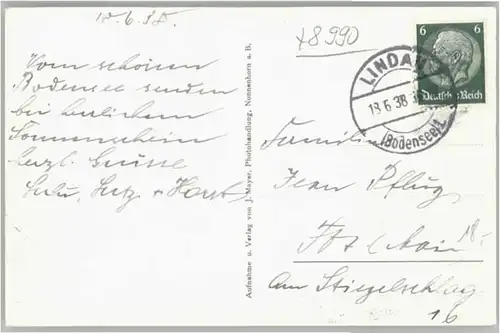 18.6.38.
Vom schönen
Bodensee senden
bei herrlichem
Sonnenschein
herzl. Grüsse
Lulu, Lutz + Horst
Aufnahme u. Verlag von J. Mayer, Photohandlung, Nonnenhorn a. B.
+8990
6 6
Deutsches Reich
LINDAU
18.6.38
(Bodensee)
Familie
Jean Pflug
Ffm
Am Stiegelschlag
16
18.-